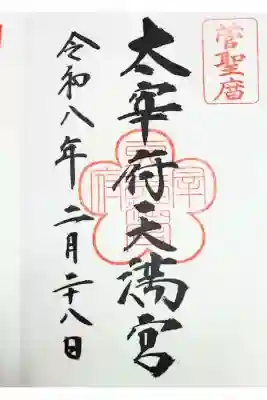 菅聖暦
太宰府天満宮
令和八年二月二十八日